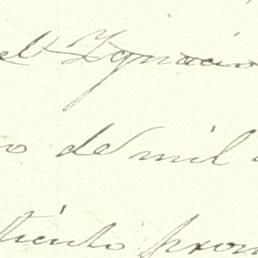 el Ygnacio
o de mil
tiento pron